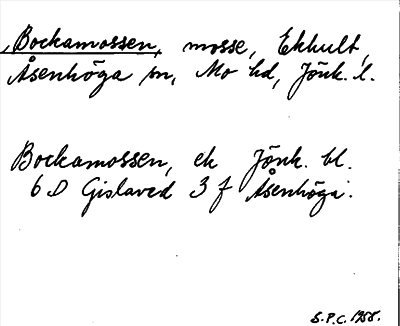 Bockamossen, mosse, Ekhult,
Åsenhöga sn, Mo hd, Jönk. l.
Bockamossen, ek Jönk. bl.
6 D Gislaved 3 f Åsenhöga.
S.P.C. 1958.